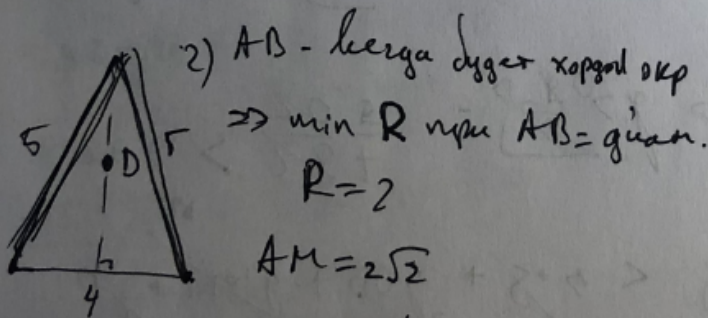 2) AB - всегда будет хордой окр
=> min R при AB = диам.
5 5
D
R = 2
AM = 2√2
4